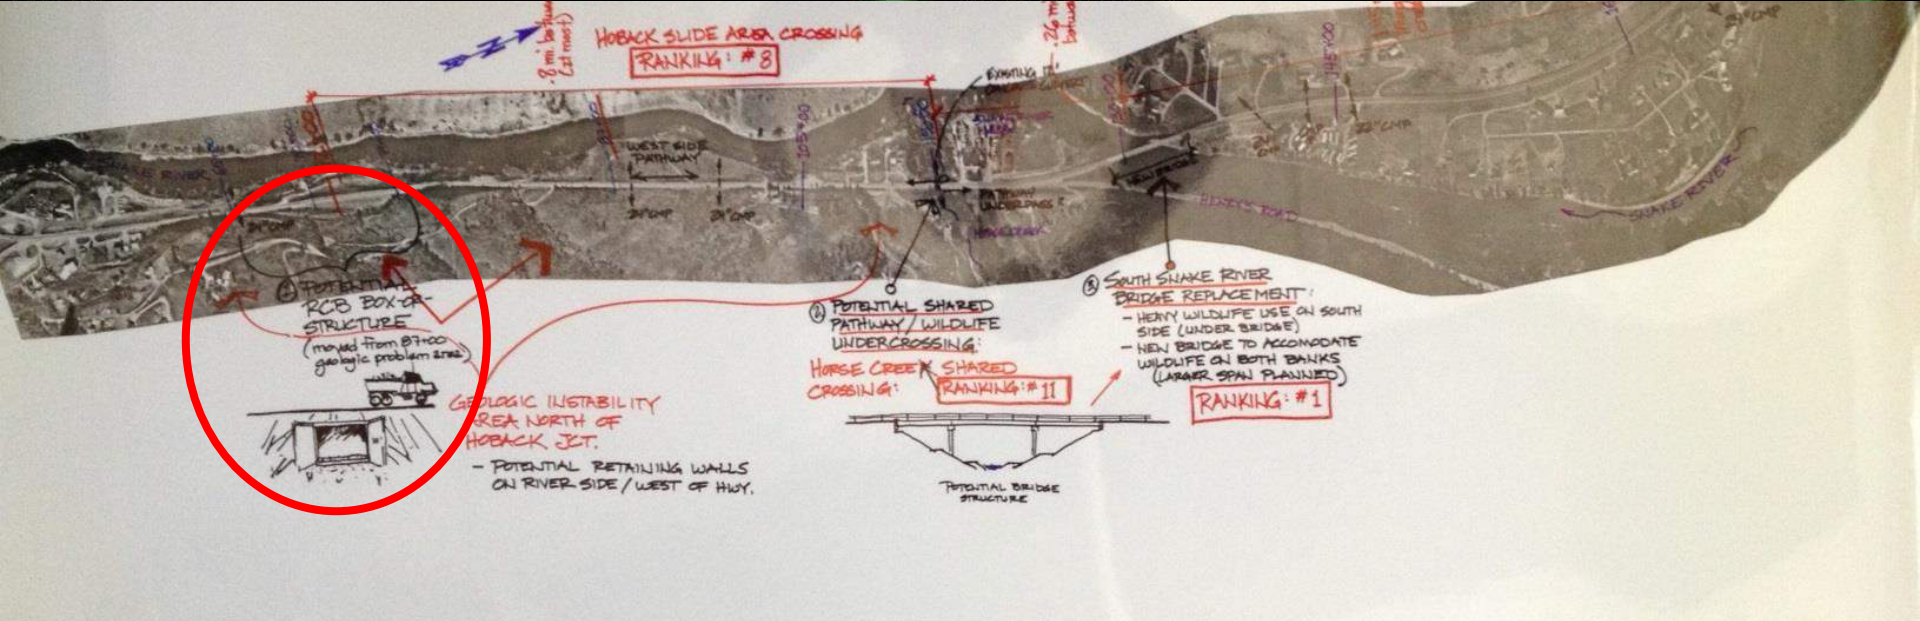 HOBACK SLIDE AREA CROSSING
RANKING: #8
.8 mi. betwe
(at most)
.26 mi
betwe
EXISTING 12'
24"CMP
145+00
105+00
WEST SIDE
PATHWAY
24"CMP
24"CMP
24"CMP
22"CMP
PATHWAY
UNDERPASS
HENRY'S ROAD
SNAKE RIVER
① POTENTIAL
RCB BOX-OR-
STRUCTURE
(moved from 87+00
geologic problem area)
GEOLOGIC INSTABILITY
AREA NORTH OF
HOBACK JCT.
- POTENTIAL RETAINING WALLS
ON RIVER SIDE/WEST OF HWY.
② POTENTIAL SHARED
PATHWAY/WILDLIFE
UNDERCROSSING:
HORSE CREEK SHARED
CROSSING:
RANKING: #11
POTENTIAL BRIDGE
STRUCTURE
③ SOUTH SNAKE RIVER
BRIDGE REPLACEMENT:
- HEAVY WILDLIFE USE ON SOUTH
SIDE (UNDER BRIDGE)
- NEW BRIDGE TO ACCOMODATE
WILDLIFE ON BOTH BANKS
(LARGER SPAN PLANNED)
RANKING: #1